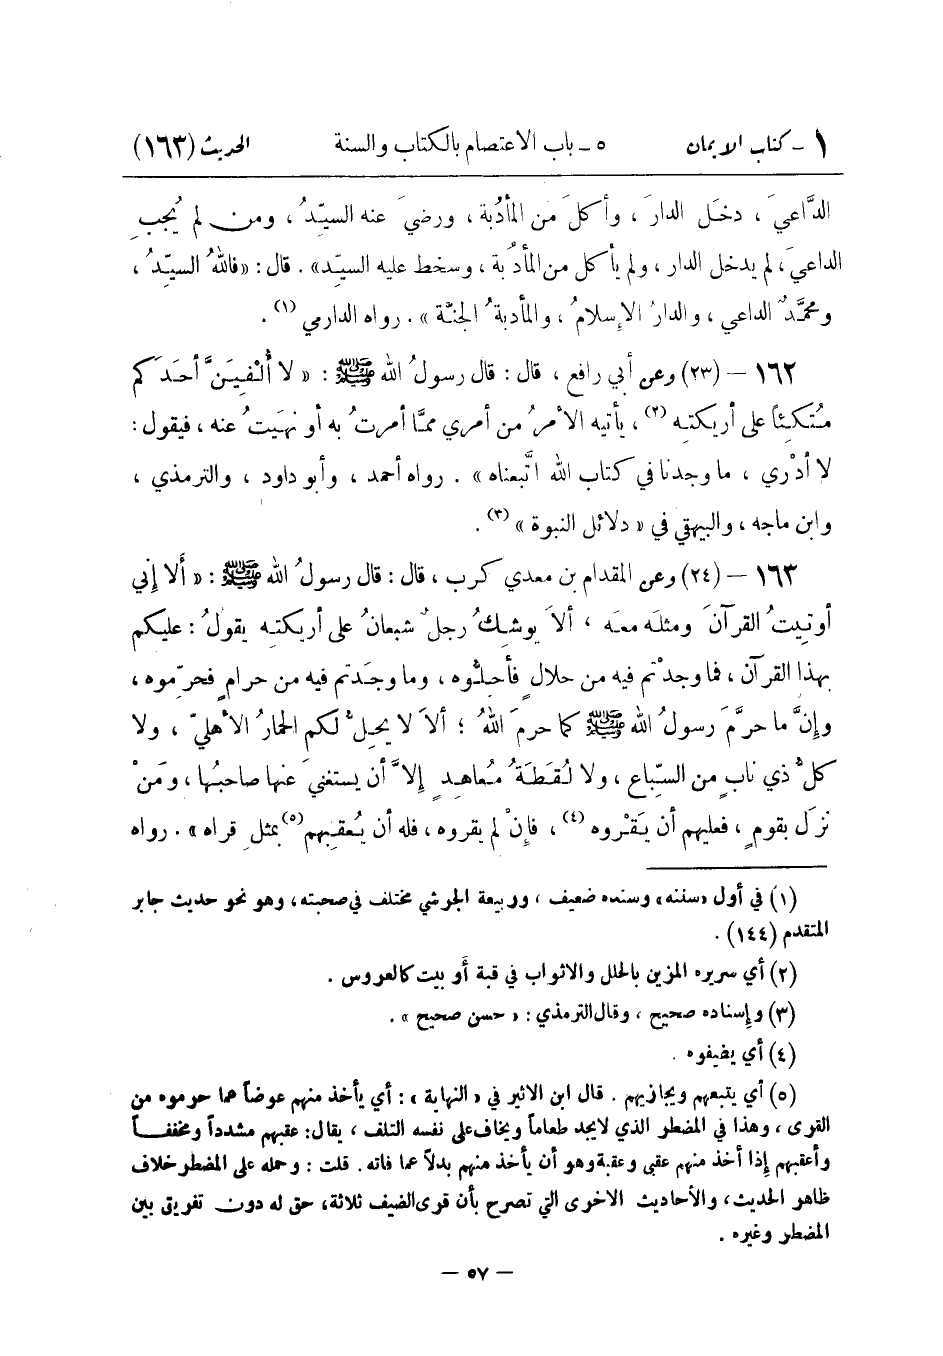 ١ - كتاب الايمان    ٥ - باب الاعتصام بالكتاب والسنة    الحديث (١٦٣)
الدَّاعيَ ، دخَل الدارَ ، وأكلَ من المأدُبة ، ورضيَ عنه السيّدُ ، ومن لم يُجبِ
الداعيَ، لم يدخل الدار ، ولم يأكل من المأدُبة ، وسخط عليه السيّد» . قال : «فاللهُ السيّدُ ،
ومحمَّدٌ الداعي ، والدارُ الإسلامُ ، والمأدبةُ الجنَّة » . رواه الدارمي (١) .
١٦٢ – (٢٣) وعن أبي رافع ، قال : قال رسولُ الله ﷺ : « لا أُلْفِيَنَّ أحَدَكم
مُتكِئاً على أريكتِه (٢) ، يأتيه الأمرُ من أمري ممَّا أمرتُ به أو نهَيتُ عنه ، فيقول :
لا أدْري ، ما وجدنا في كتاب الله اتَّبعناه » . رواه أحمد ، وأبو داود ، والترمذي ،
وابن ماجه ، والبيهقي في « دلائل النبوة » (٣) .
١٦٣ – (٢٤) وعن المقدام بن معدي كرب ، قال : قال رسولُ الله ﷺ : « ألا إني
أوتيتُ القرآنَ ومثلَه معَه ، ألاَ يوشِكُ رجلٌ شبعانُ على أريكتِه يقولُ : عليكم
بهذا القرآن ، فما وجدْتم فيه من حلالٍ فأحِلُّوه ، وما وجَدتم فيه من حرامٍ فحرّموه ،
وإنَّ ما حرَّمَ رسولُ الله ﷺ كما حرمَ اللهُ ؛ ألاَ لا يحِلُّ لكم الحمارُ الأهليّ ، ولا
كلُّ ذي نابٍ من السّباع ، ولا لُقَطَةُ مُعاهِدٍ إلاَّ أن يستغنيَ عنها صاحبُها ، ومَنْ
نزَل بقومٍ ، فعليهم أن يَقْروه (٤) ، فإنْ لم يقروه ، فله أن يُعقبهم (٥) بمثلِ قراه » . رواه
(١) في أول «سننه» وسنده ضعيف ، وربيعة الجرشي مختلف في صحبته، وهو نحو حديث جابر
المتقدم (١٤٤) .
(٢) أي سريره المزين بالحلل والاثواب في قبة أو بيت كالعروس .
(٣) وإسناده صحيح ، وقال الترمذي : « حسن صحيح » .
(٤) أي يضيفوه .
(٥) أي يتبعهم ويجازيهم . قال ابن الاثير في « النهاية » : أي يأخذ منهم عوضاً عما حرموه من
القرى ، وهذا في المضطر الذي لايجد طعاماً ويخاف على نفسه التلف ، يقال: عقبهم مشدداً ومخففاً
وأعقبهم إذا أخذ منهم عقبى وعقبة وهو أن يأخذ منهم بدلاً عما فاته . قلت : وحمله على المضطر خلاف
ظاهر الحديث، والأحاديث الاخرى التي تصرح بأن قرى الضيف ثلاثة، حق له دون تفريق بين
المضطر وغيره .
– ٥٧ –